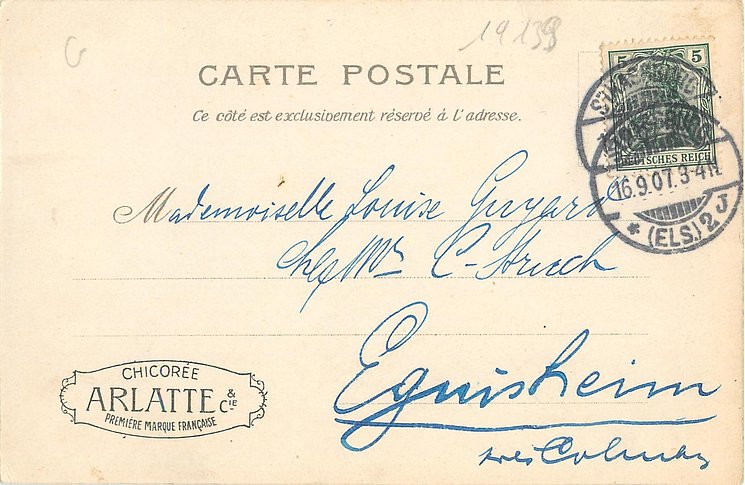 G
19138
CARTE POSTALE
Ce côté est exclusivement réservé à l'adresse.
5 5
DEUTSCHES REICH
STRASSBURG
16.9.07. 3-4N
* (ELS.) 2 J
Mademoiselle Louise Guyard
chez Mr C-Struch
Eguisheim
près Colmar
CHICORÉE
ARLATTE & CIE
PREMIÈRE MARQUE FRANÇAISE